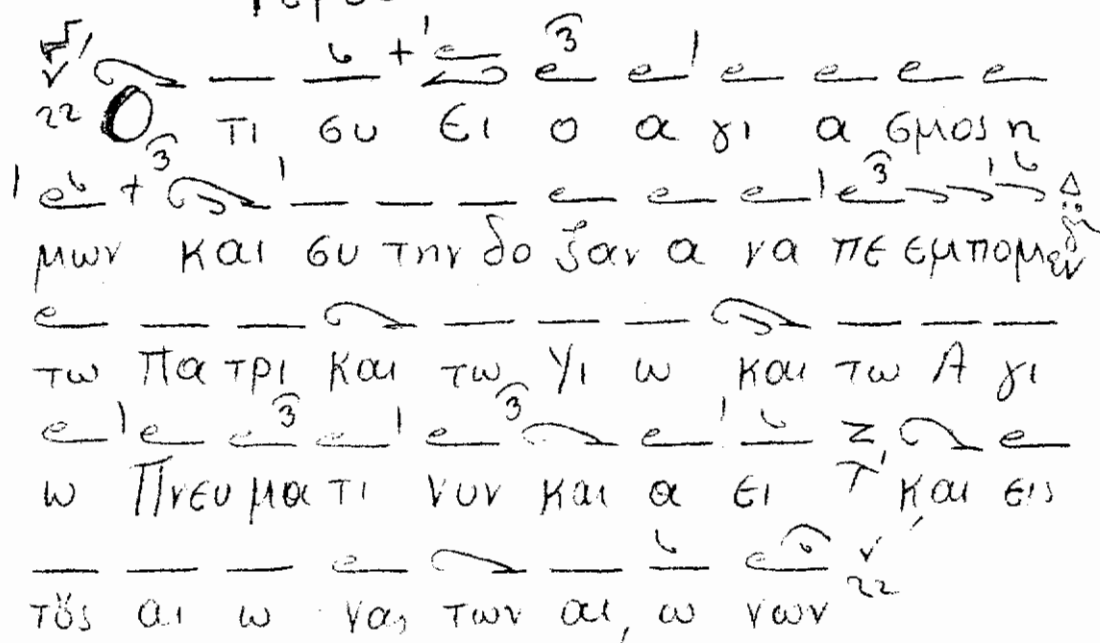 Ο τι συ ει ο α γι α σμος η
μων και συ την δο ξαν α να πε εμπομεν
τω Πα τρι και τω Υι ω και τω Α γι
ω Πνευ μα τι νυν και α ει και εις
τȣς αι ω νας των αι, ω νων